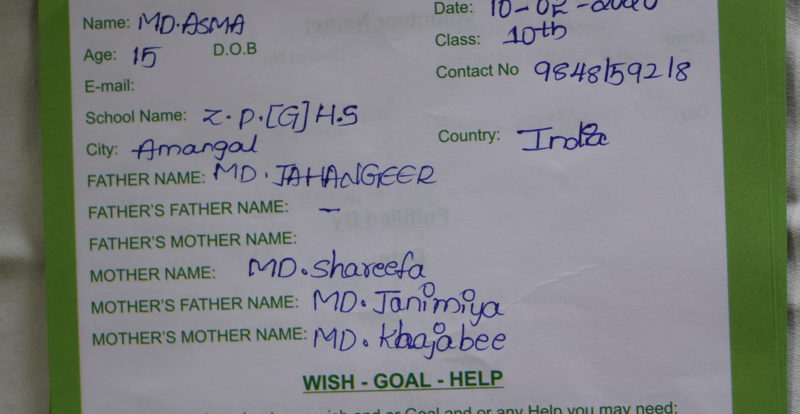 Name: MD.ASMA Date: 10-02-2020
Age: 15 D.O.B Class: 10th
E-mail: Contact No 9848159218
School Name: Z.P.[G]H.S
City: Amangal Country: India
FATHER NAME: MD.JAHANGEER
FATHER'S FATHER NAME: –
FATHER'S MOTHER NAME:
MOTHER NAME: MD.Shareefa
MOTHER'S FATHER NAME: MD.Janimiya
MOTHER'S MOTHER NAME: MD.Khajabee
WISH - GOAL - HELP
and or Goal and or any Help you may need: